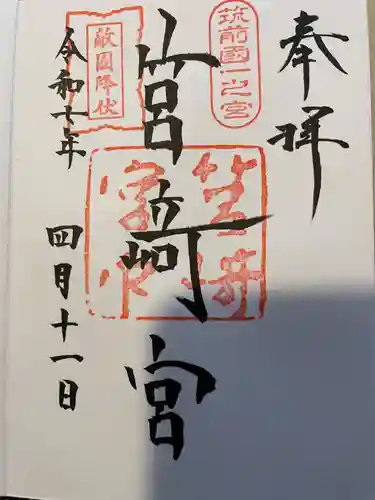 奉拝
筑前國一之宮
筥﨑宮
筥埼
宮印
敵國降伏
令和七年 四月十一日